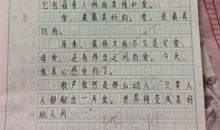 它包含着人间的真情和爱。
爱，最最美好的。爱，是最真
切的。
原来，最伟大的不只是父爱、
母爱，还有师生之间的爱。今天，
我真心感受到了。
歌声依然是那么动人：“只要人
人都献出一片爱，世界将变成美好
的人间……”